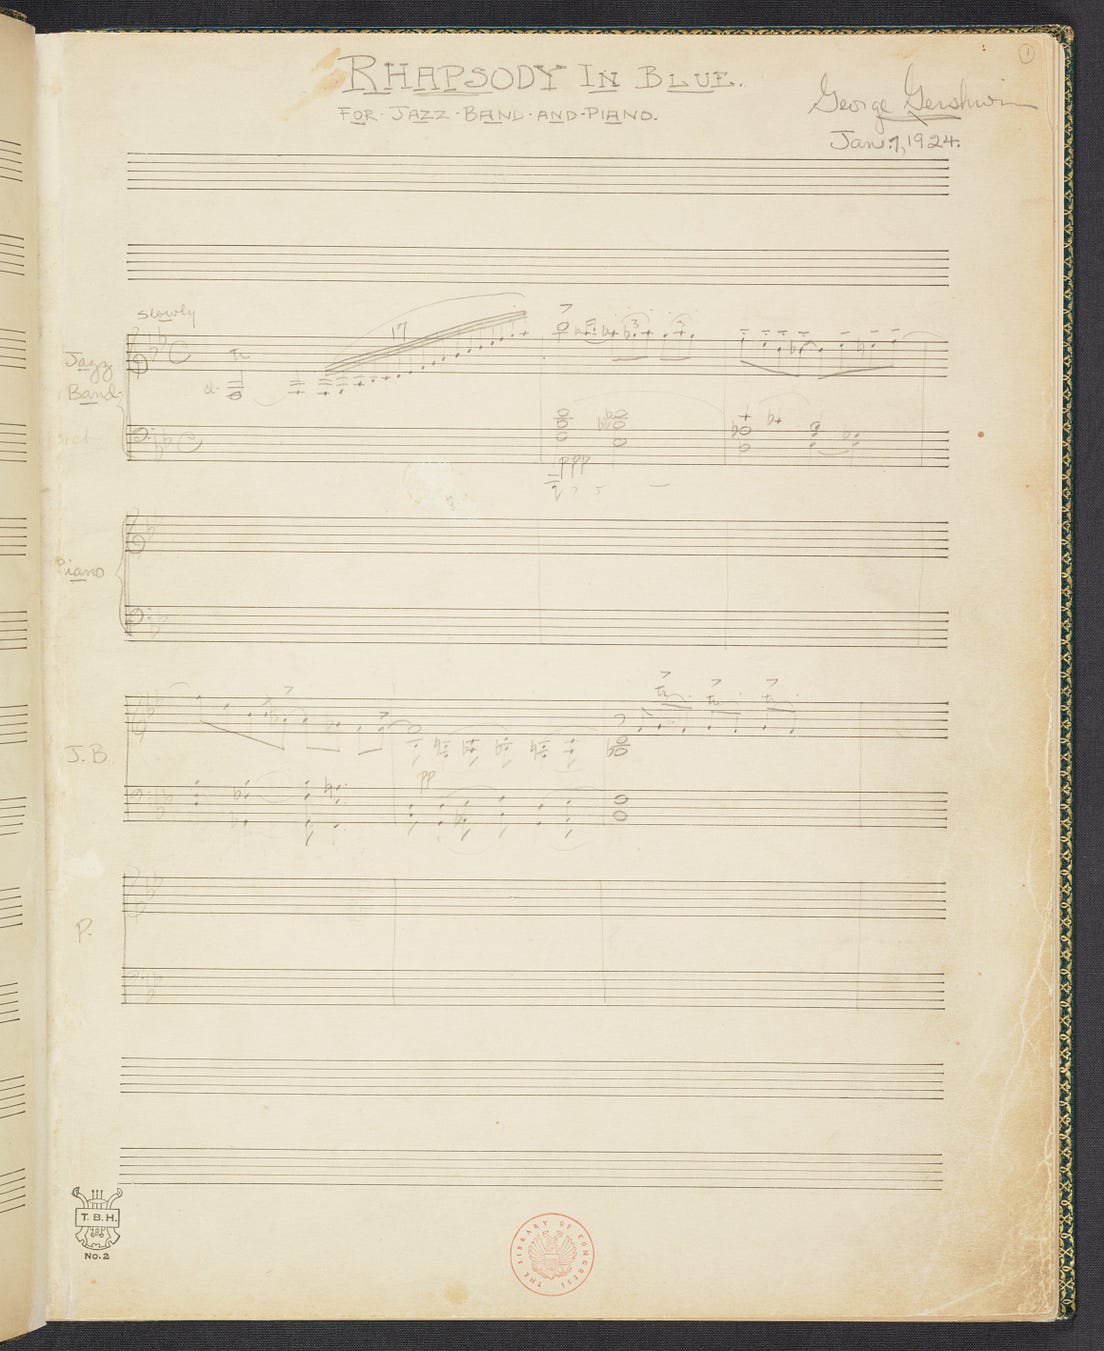 1
RHAPSODY IN BLUE.
FOR·JAZZ·BAND·AND·PIANO.
George Gershwin
Jan. 7, 1924.
slowly
17
Jazz
Band
tr
cl.
3
3
ppp
Piano
tr
tr
tr
J.B.
pp
P.
T.B.H.
No. 2
THE LIBRARY OF CONGRESS